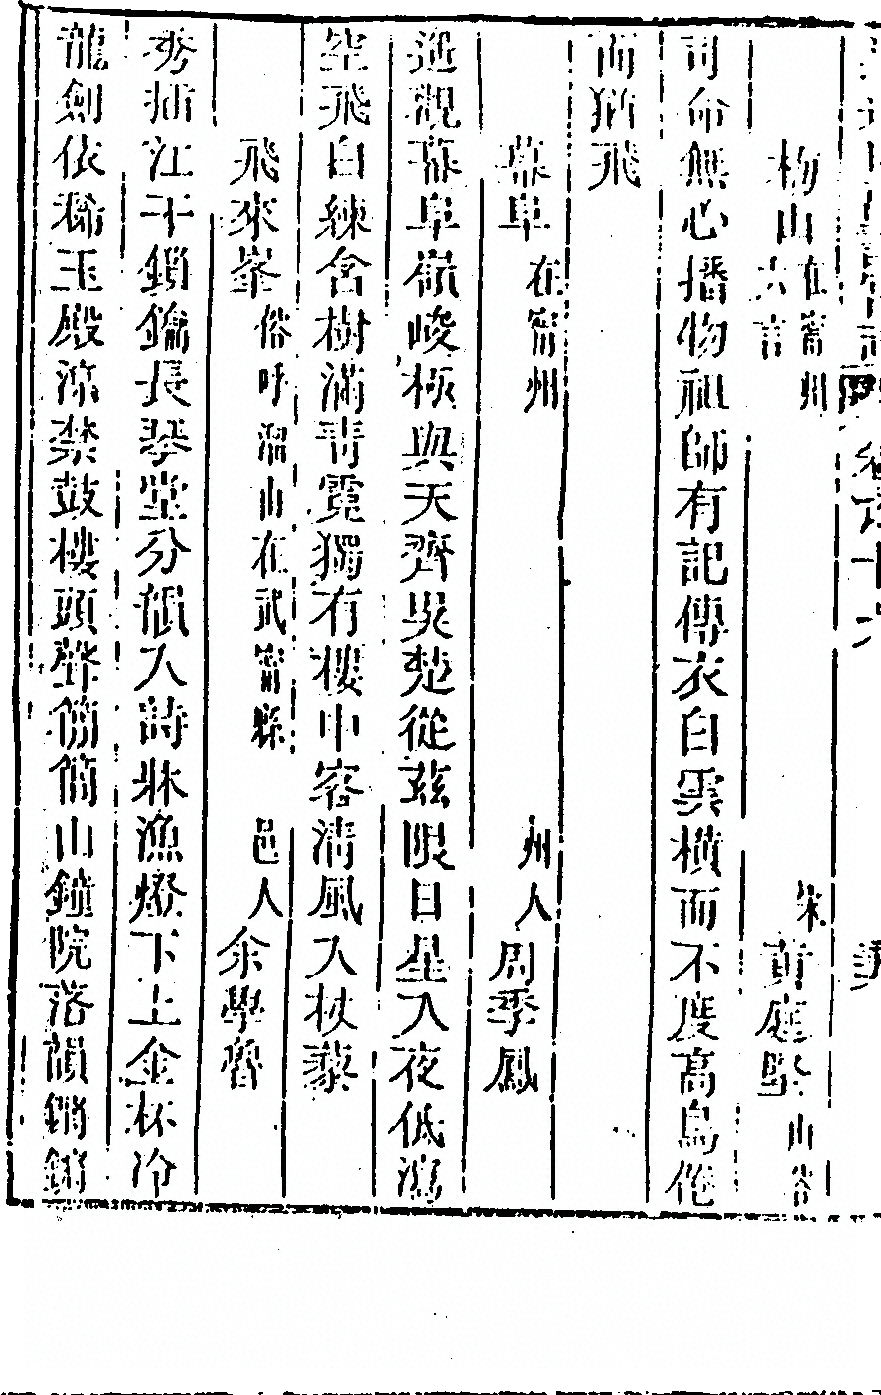 山在甯州六言 宋黃庭堅山谷
司命無心播物祖師有記傳衣白雲橫而不度高鳥倦
而猶飛
幕阜在甯州 州人周季鳳
逈觀幕阜嶺峻極與天齊吳楚從茲限日星入夜低瀉
空飛白練含樹滿青霓獨有樓中客清風入杖藜
飛來峯俗呼溜山在武甯縣 邑人余學魯
秀插江干鎖鑰長琴堂分韻入詩牀漁燈下上金杯冷
龍劍依稀玉殿涼禁鼓樓頭聲簡簡山鐘院落韻鏘鏘